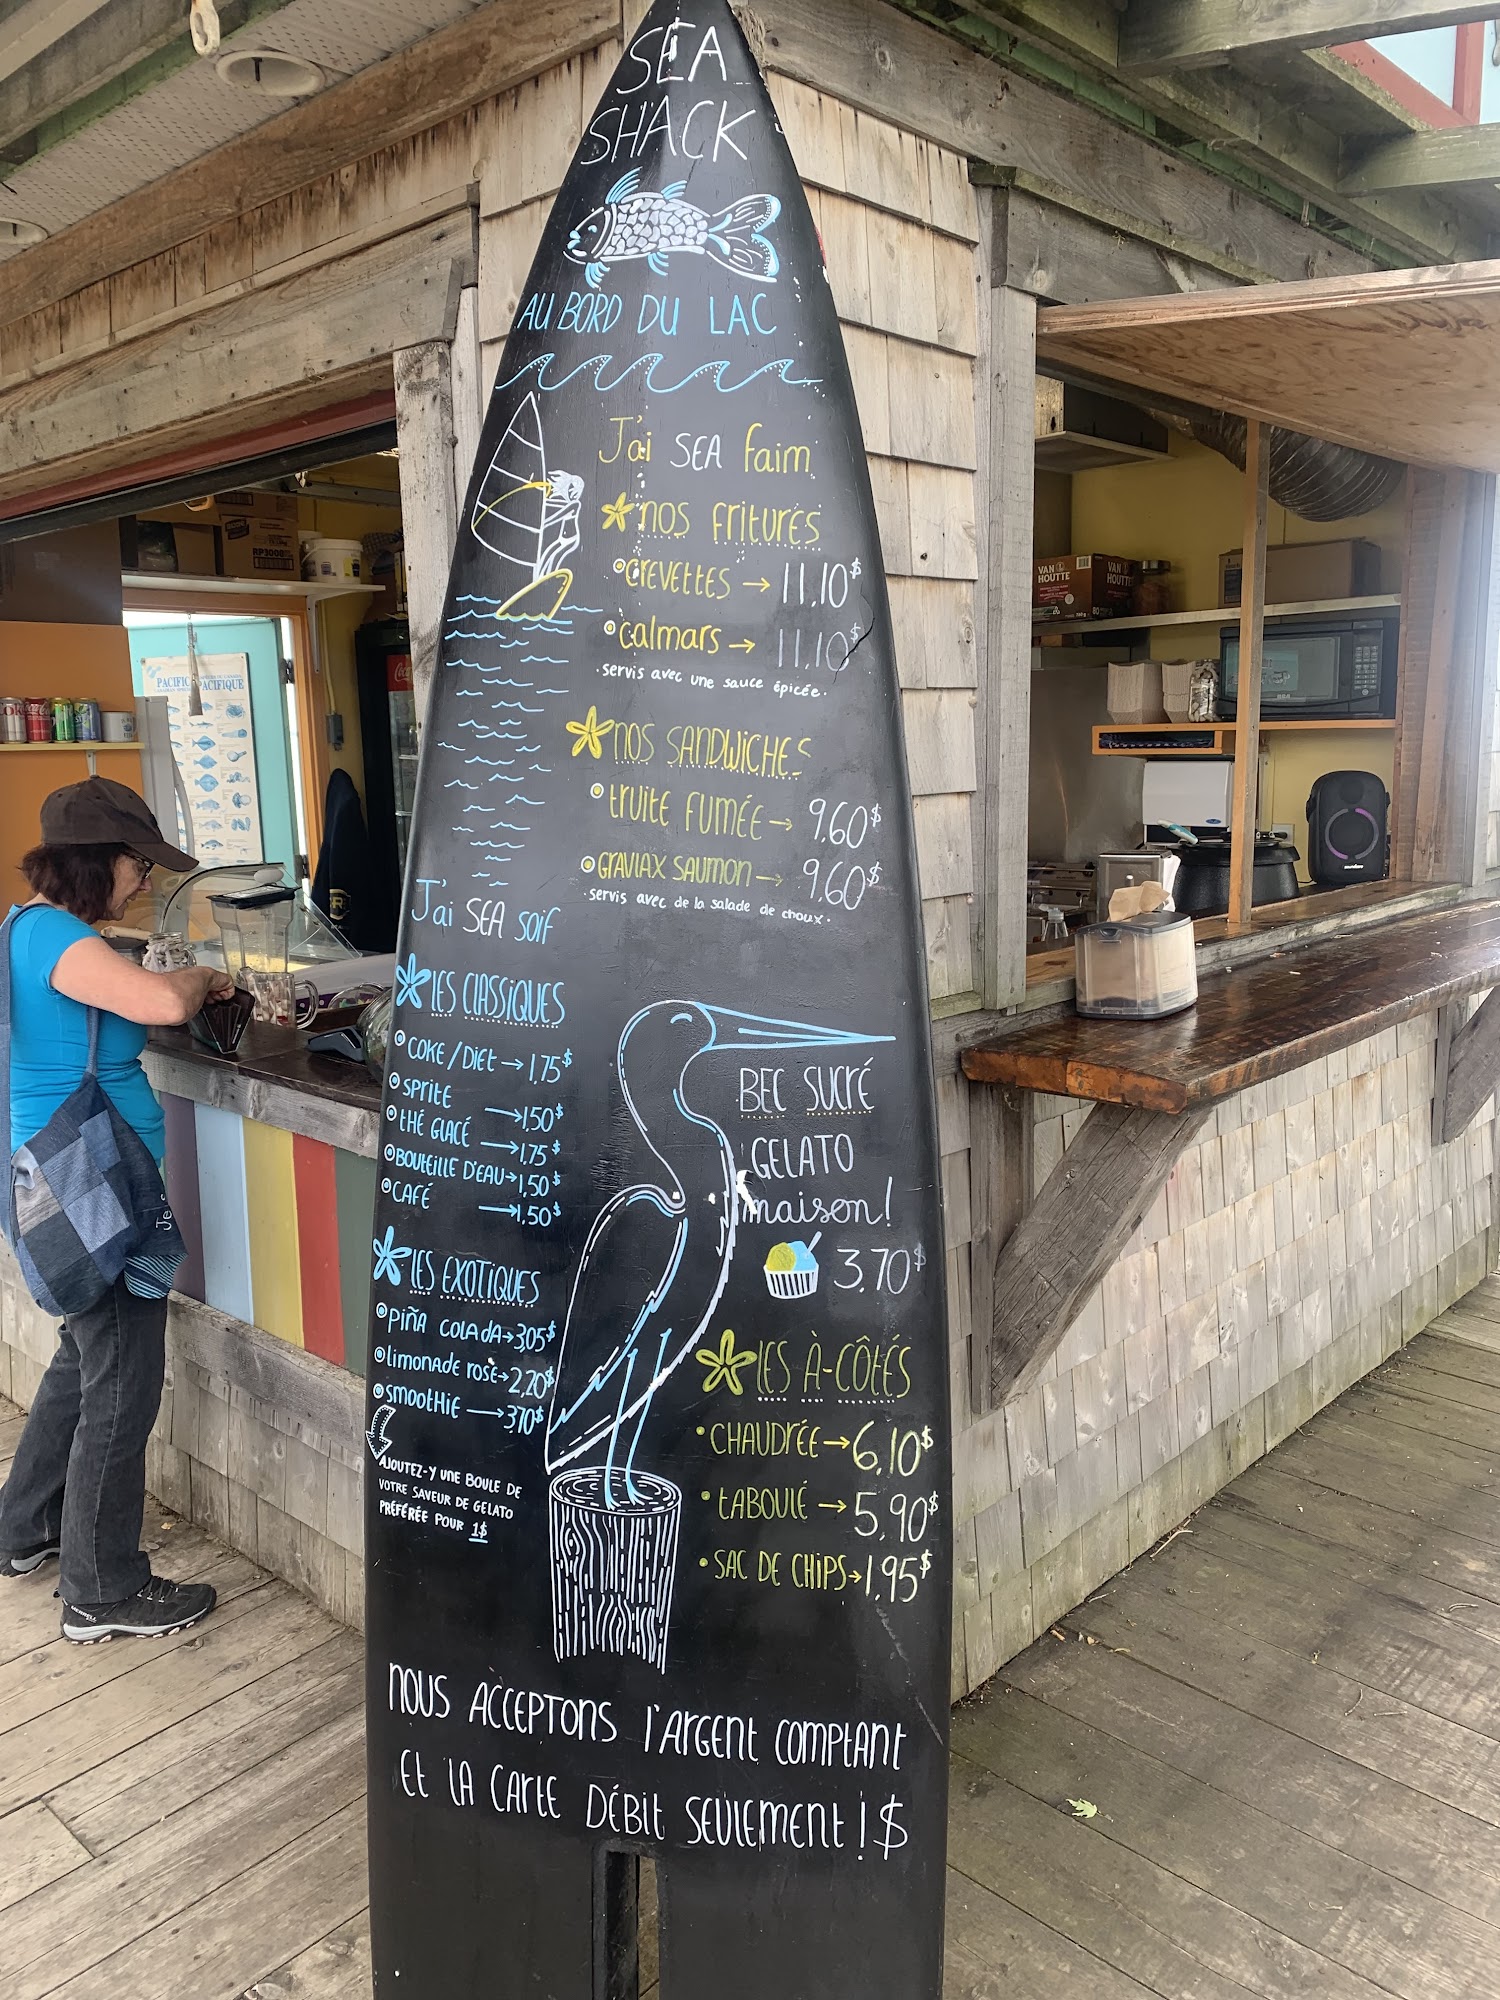 SEA
SHACK
AU BORD DU LAC
J'ai SEA faim
nos fritures
crevettes → 11,10$
calmars → 11,10$
· servis avec une sauce épicée ·
nos sandwiches
truite fumée → 9,60$
graviax saumon → 9,60$
· servis avec de la salade de choux ·
J'ai SEA soif
les classiques
coke/diet → 1,75$
sprite → 1,50$
thé glacé → 1,75$
bouteille d'eau → 1,50$
café → 1,50$
les exotiques
piña colada → 3,05$
limonade rose → 2,20$
smoothie → 3,70$
Ajoutez-y une boule de
votre saveur de gelato
préférée pour 1$
bec sucré
gelato
maison!
3,70$
les à-côtés
· chaudrée → 6,10$
· taboulé → 5,90$
· sac de chips → 1,95$
nous acceptons l'argent comptant
et la carte débit seulement! $
PACIFIC
PACIFIQUE
RP3000
VAN
HOUTTE
VAN
HOUTTE
80
RCA
MERRELL
Coca-Cola
Je